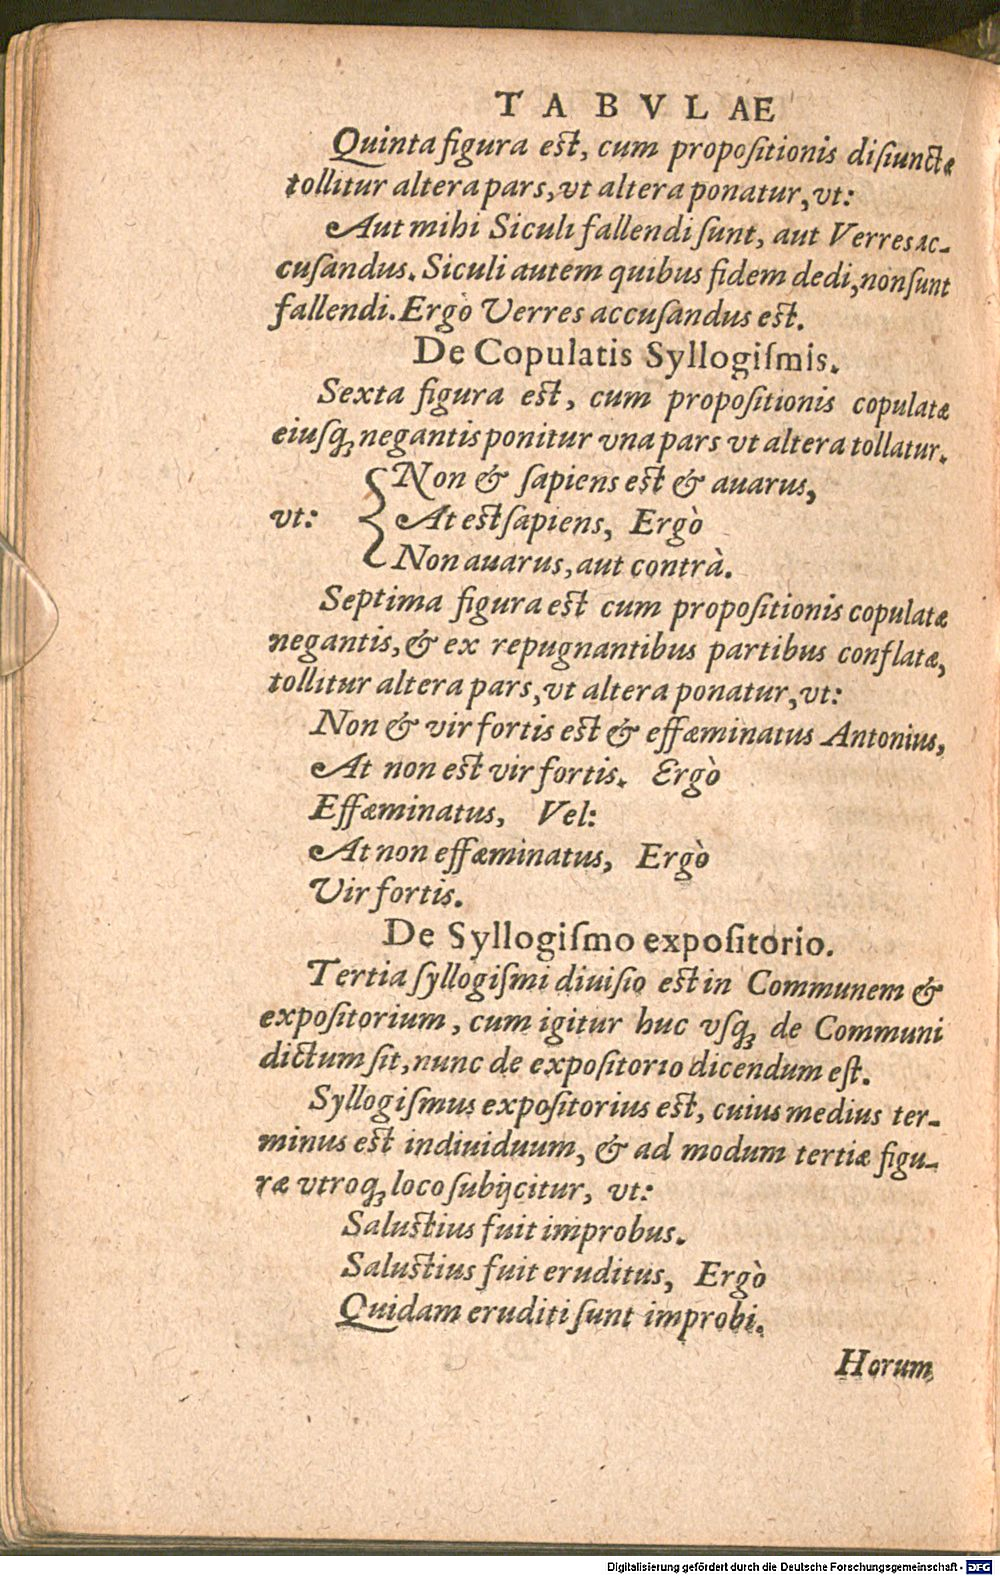 TABVLAE
Quinta figura est, cum propositionis disiunctæ
tollitur altera pars, vt altera ponatur, vt:
Aut mihi Siculi fallendi sunt, aut Verres ac-
cusandus. Siculi autem quibus fidem dedi, non sunt
fallendi. Ergò Verres accusandus est.
De Copulatis Syllogiſmis.
Sexta figura est, cum propoſitionis copulatæ
eiuſq́; negantis ponitur vna pars vt altera tollatur.
Non & ſapiens est & auarus,
vt: At est ſapiens, Ergò
Non auarus, aut contrà.
Septima figura est cum propoſitionis copulatæ
negantis, & ex repugnantibus partibus conflatæ,
tollitur altera pars, vt altera ponatur, vt:
Non & vir fortis est & effæminatus Antonius,
At non est vir fortis. Ergò
Effæminatus, Vel:
At non effæminatus, Ergò
Vir fortis.
De Syllogiſmo expoſitorio.
Tertia ſyllogiſmi diuiſio est in Communem &
expoſitorium, cum igitur huc vſq; de Communi
dictum ſit, nunc de expoſitorio dicendum eſt.
Syllogiſmus expoſitorius est, cuius medius ter-
minus est indiuiduum, & ad modum tertiæ figu-
ræ vtroq; loco ſubijcitur, vt:
Salustius fuit improbus.
Salustius fuit eruditus, Ergò
Quidam eruditi ſunt improbi.
Horum
Digitalisierung gefördert durch die Deutsche Forschungsgemeinschaft - DFG